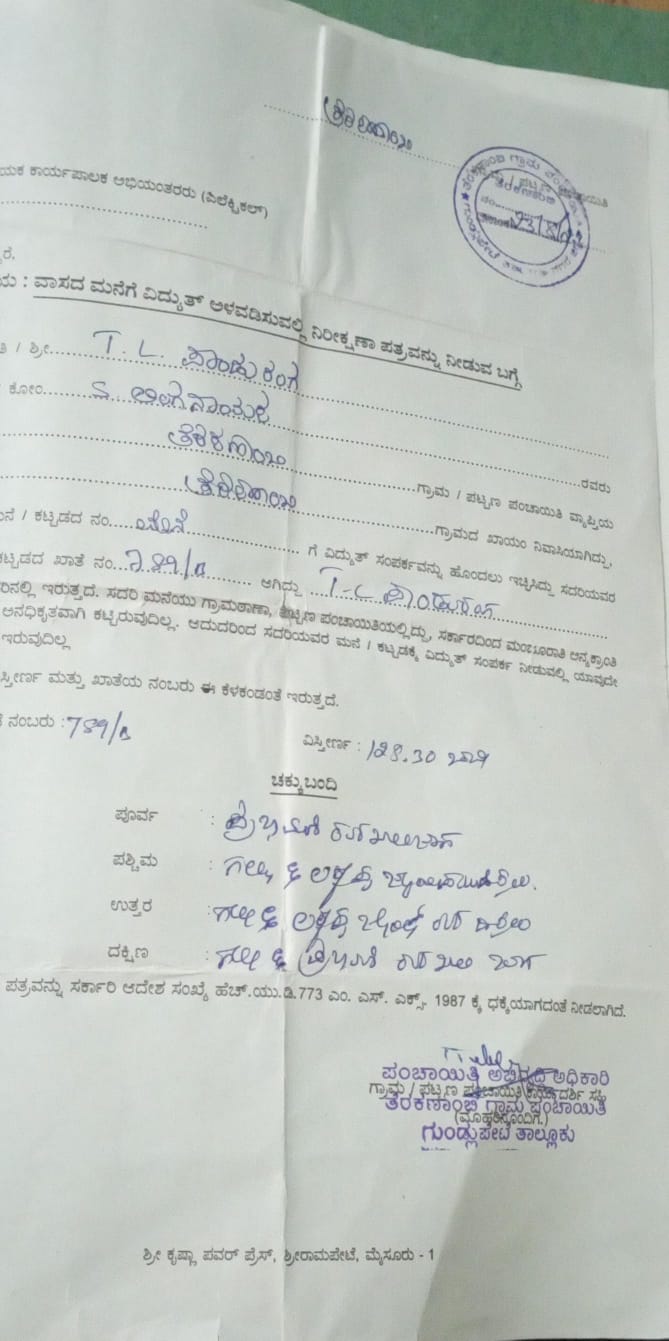 ತೆರಕಣಾಂಬಿ
ತೆರಕಣಾಂಬಿ ಗ್ರಾಮ
ಪಟ್ಟಣ ಪಂಚಾಯಿತಿ
ತೆರಕಣಾಂಬಿ
23/8/
ಗುಂಡ್ಲುಪೇಟೆ
ಯಕ ಕಾರ್ಯಪಾಲಕ ಅಭಿಯಂತರರು (ವಿಲೆಕ್ಟ್ರಿಕಲ್)
ರೆ.
ಯ : ವಾಸದ ಮನೆಗೆ ವಿದ್ಯುತ್ ಅಳವಡಿಸುವಲ್ಲಿ ನಿರೀಕ್ಷಣಾ ಪತ್ರವನ್ನು ನೀಡುವ ಬಗ್ಗೆ
/ ಶ್ರೀ T. L. ಪಾಂಡುರಂಗ
ಕೋಂ S. ರವರು
ತೆರಕಣಾಂಬಿ ಗ್ರಾಮ / ಪಟ್ಟಣ ಪಂಚಾಯಿತಿ ವ್ಯಾಪ್ತಿಯ
ತೆರಕಣಾಂಬಿ ಗ್ರಾಮದ ಖಾಯಂ ನಿವಾಸಿಯಾಗಿದ್ದು,
ನೆ / ಕಟ್ಟಡದ ನಂ. ಗೆ ವಿದ್ಯುತ್ ಸಂಪರ್ಕವನ್ನು ಹೊಂದಲು ಇಚ್ಛಿಸಿದ್ದು ಸದರಿಯವರ
ಕಟ್ಟಡದ ಖಾತೆ ನಂ. 789/ಎ ಆಗಿದ್ದು T-L ಪಾಂಡುರಂಗ
ರಿನಲ್ಲಿ ಇರುತ್ತದೆ. ಸದರಿ ಮನೆಯು ಗ್ರಾಮಠಾಣಾ, ಪಟ್ಟಣ ಪಂಚಾಯಿತಿಯಲ್ಲಿದ್ದು, ಸರ್ಕಾರದಿಂದ ಮಂಜೂರಾತಿ ಅನ್ಯಕ್ರಾಂತಿ
ಅನಧಿಕೃತವಾಗಿ ಕಟ್ಟಿರುವುದಿಲ್ಲ. ಆದುದರಿಂದ ಸದರಿಯವರ ಮನೆ / ಕಟ್ಟಡಕ್ಕೆ ವಿದ್ಯುತ್ ಸಂಪರ್ಕ ನೀಡುವಲ್ಲಿ ಯಾವುದೇ
ಇರುವುದಿಲ್ಲ
ಸ್ತೀರ್ಣ ಮತ್ತು ಖಾತೆಯ ನಂಬರು ಈ ಕೆಳಕಂಡಂತೆ ಇರುತ್ತದೆ.
ನಂಬರು : 789/ಎ ವಿಸ್ತೀರ್ಣ : 128.30
ಚಕ್ಕುಬಂದಿ
ಪೂರ್ವ :
ಪಶ್ಚಿಮ : ಗಲ್ಲಿ &
ಉತ್ತರ : ಗಲ್ಲಿ &
ದಕ್ಷಿಣ : ಗಲ್ಲಿ &
ಪತ್ರವನ್ನು ಸರ್ಕಾರಿ ಆದೇಶ ಸಂಖ್ಯೆ ಹೆಚ್.ಯು.ಡಿ.773 ಎಂ. ಎಸ್. ಎಕ್ಸ್. 1987 ಕ್ಕೆ ಧಕ್ಕೆಯಾಗದಂತೆ ನೀಡಲಾಗಿದೆ.
ಪಂಚಾಯಿತಿ ಅಭಿವೃದ್ಧಿ ಅಧಿಕಾರಿ
ಗ್ರಾಮ / ಪಟ್ಟಣ ಪಂಚಾಯಿತಿ ಕಾರ್ಯದರ್ಶಿ ಸಹಿ
ತೆರಕಣಾಂಬಿ ಗ್ರಾಮ ಪಂಚಾಯಿತಿ
(ಮೊಹರಿನೊಂದಿಗೆ.)
ಗುಂಡ್ಲುಪೇಟೆ ತಾಲ್ಲೂಕು
ಶ್ರೀ ಕೃಷ್ಣಾ ಪವರ್ ಪ್ರೆಸ್, ಶ್ರೀರಾಮಪೇಟೆ, ಮೈಸೂರು - 1